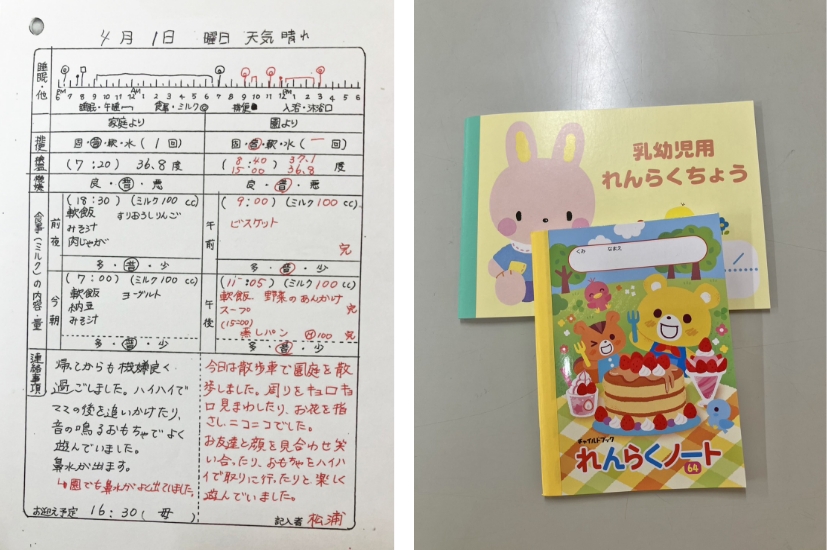 4月 1日 曜日 天気 晴れ
睡眠・他
PM 6 7 8 9 10 11 12 AM 1 2 3 4 5 6 7 8 9 10 11 12 PM 1 2 3 4 5 6
睡眠・午睡 食事・ミルク 排便 入浴・沐浴
家庭より
園より
排便
固・普・軟・水 ( 1 回)
固・普・軟・水 (一 回)
検温
(7:20) 36.8 度
(8:40 37.1 度
15:00 36.8)
機嫌
良・普・悪
良・普・悪
食事(ミルク)の内容・量
前夜
(18:30) (ミルク100 cc)
軟飯 すりおろしりんご
みそ汁
肉じゃが
多・普・少
午前
(9:00) (ミルク100 cc)
ビスケット
完
多・普・少
今朝
(7:00) (ミルク100 cc)
軟飯 ヨーグルト
納豆
みそ汁
多・普・少
午後
(11:05) (ミルク100 cc)
軟飯 野菜のあんかけ
スープ 完
(15:00)
蒸しパン 100 完
多・普・少
連絡事項
帰ってからも機嫌良く
過ごしました。ハイハイで
ママの後を追いかけたり、
音の鳴るおもちゃでよく
遊んでいました。
鼻水が出ます。
↳園でも鼻水がよく出ていました。
今日は散歩車で園庭を散
歩しました。周りをキョロキョ
ロ見まわしたり、お花を指
さし、ニコニコでした。
お友達と顔を見合わせ笑
い合ったり、おもちゃをハイハ
イで取りに行ったりと楽しく
遊んでいました。
お迎え予定 16:30 (母)
記入者 松浦
乳幼児用
れんらくちょう
くみ なまえ
チャイルドブック
れんらくノート
64